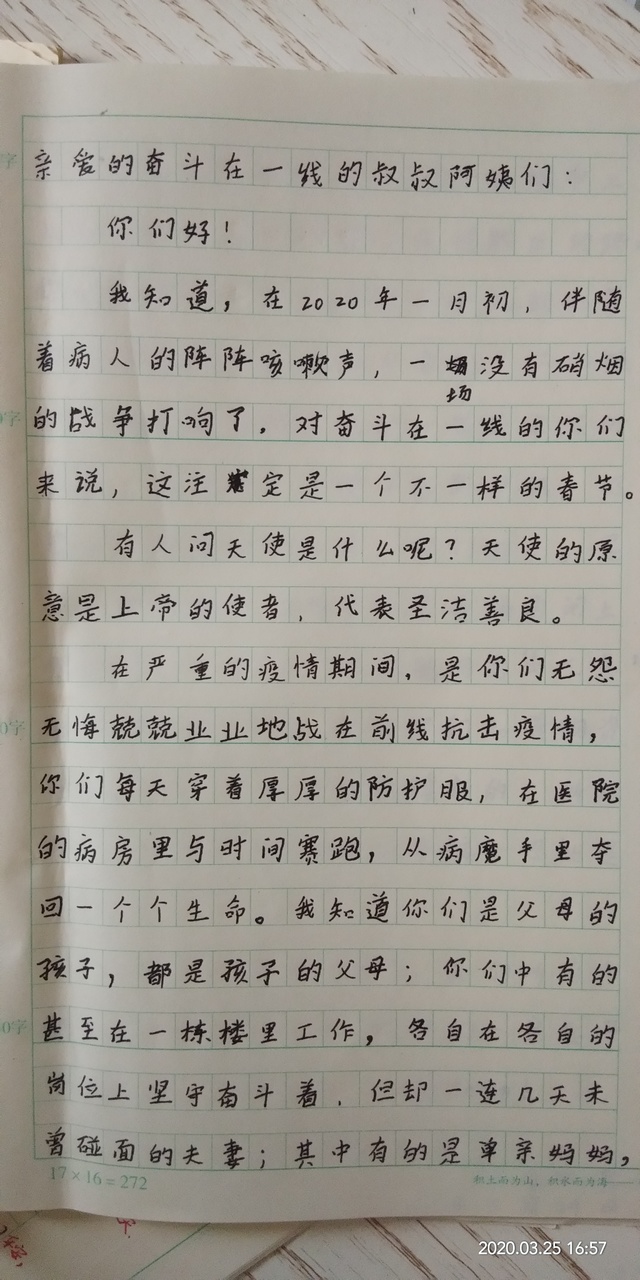 亲爱的奋斗在一线的叔叔阿姨们：
你们好！
我知道，在2020年一月初，伴随
着病人的阵阵咳嗽声，一场没有硝烟
的战争打响了。对奋斗在一线的你们
来说，这注定是一个不一样的春节。
有人问天使是什么呢？天使的原
意是上帝的使者，代表圣洁善良。
在严重的疫情期间，是你们无怨
无悔兢兢业业地战在前线抗击疫情，
你们每天穿着厚厚的防护服，在医院
的病房里与时间赛跑，从病魔手里夺
回一个个生命。我知道你们是父母的
孩子，都是孩子的父母；你们中有的
甚至在一栋楼里工作，各自在各自的
岗位上坚守奋斗着，但却一连几天未
曾碰面的夫妻；其中有的是单亲妈妈，
17×16=272
积土而为山，积水而为海
2020.03.25 16:57